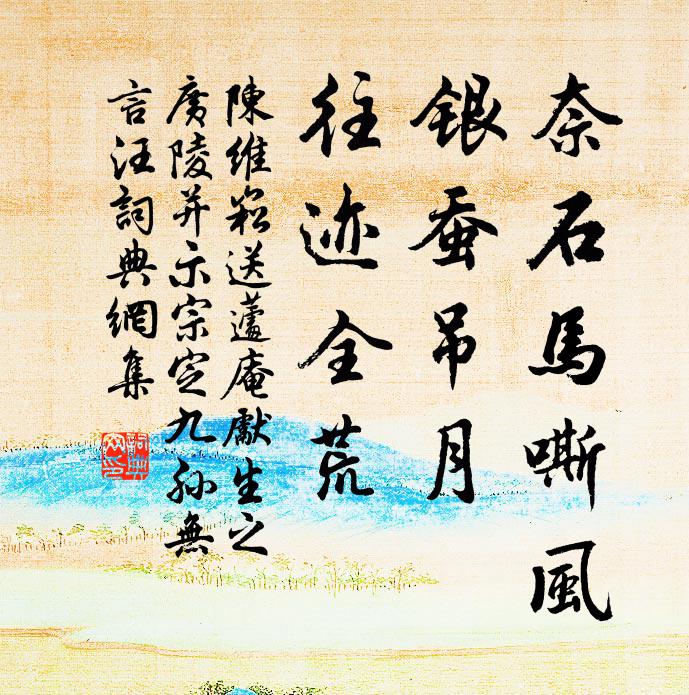 奈石馬嘶風
銀蚕吊月
往迹全荒
陳維崧送蘧庵獻生之
廣陵并示宗定九孫無
言汪詞典網集